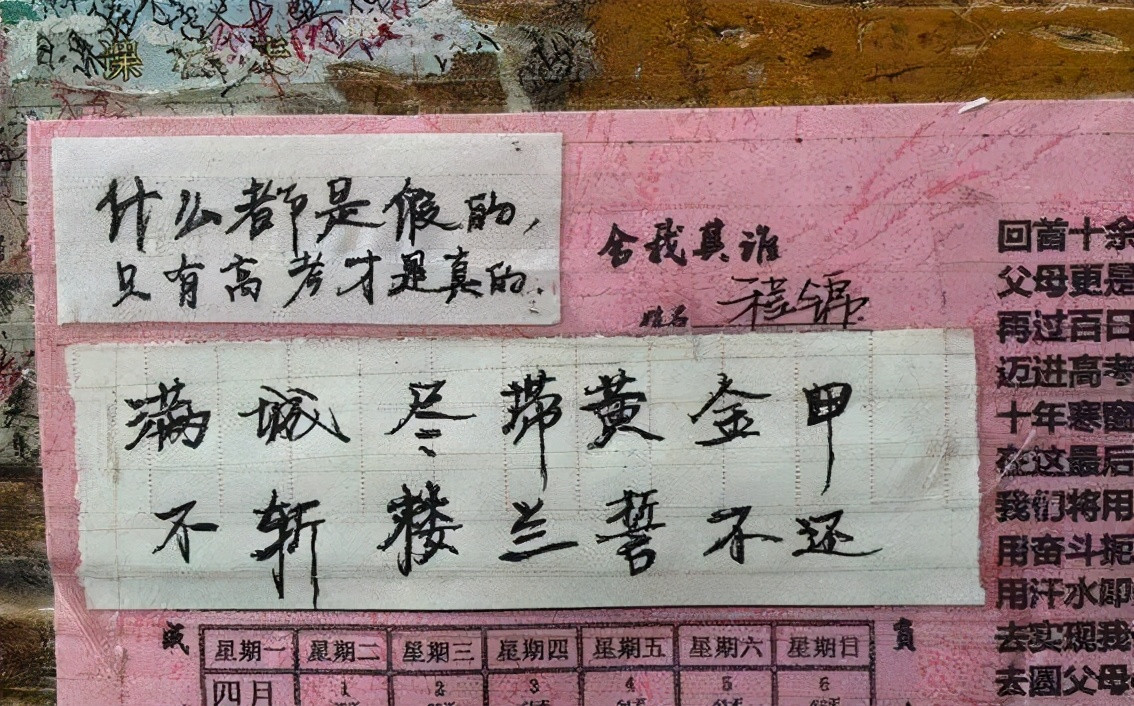 什么都是假的,
只有高考才是真的.
舍我其谁
姓名 程锦
满城尽带黄金甲
不斩楼兰誓不还
星期一 星期二 星期三 星期四 星期五 星期六 星期日
四月 1 2 3 4 5 6
回首十余
父母更是
再过百日
迈进高考
十年寒窗
在这最后
我们将用
用奋斗扼
用汗水即
去实现我
去圆父母